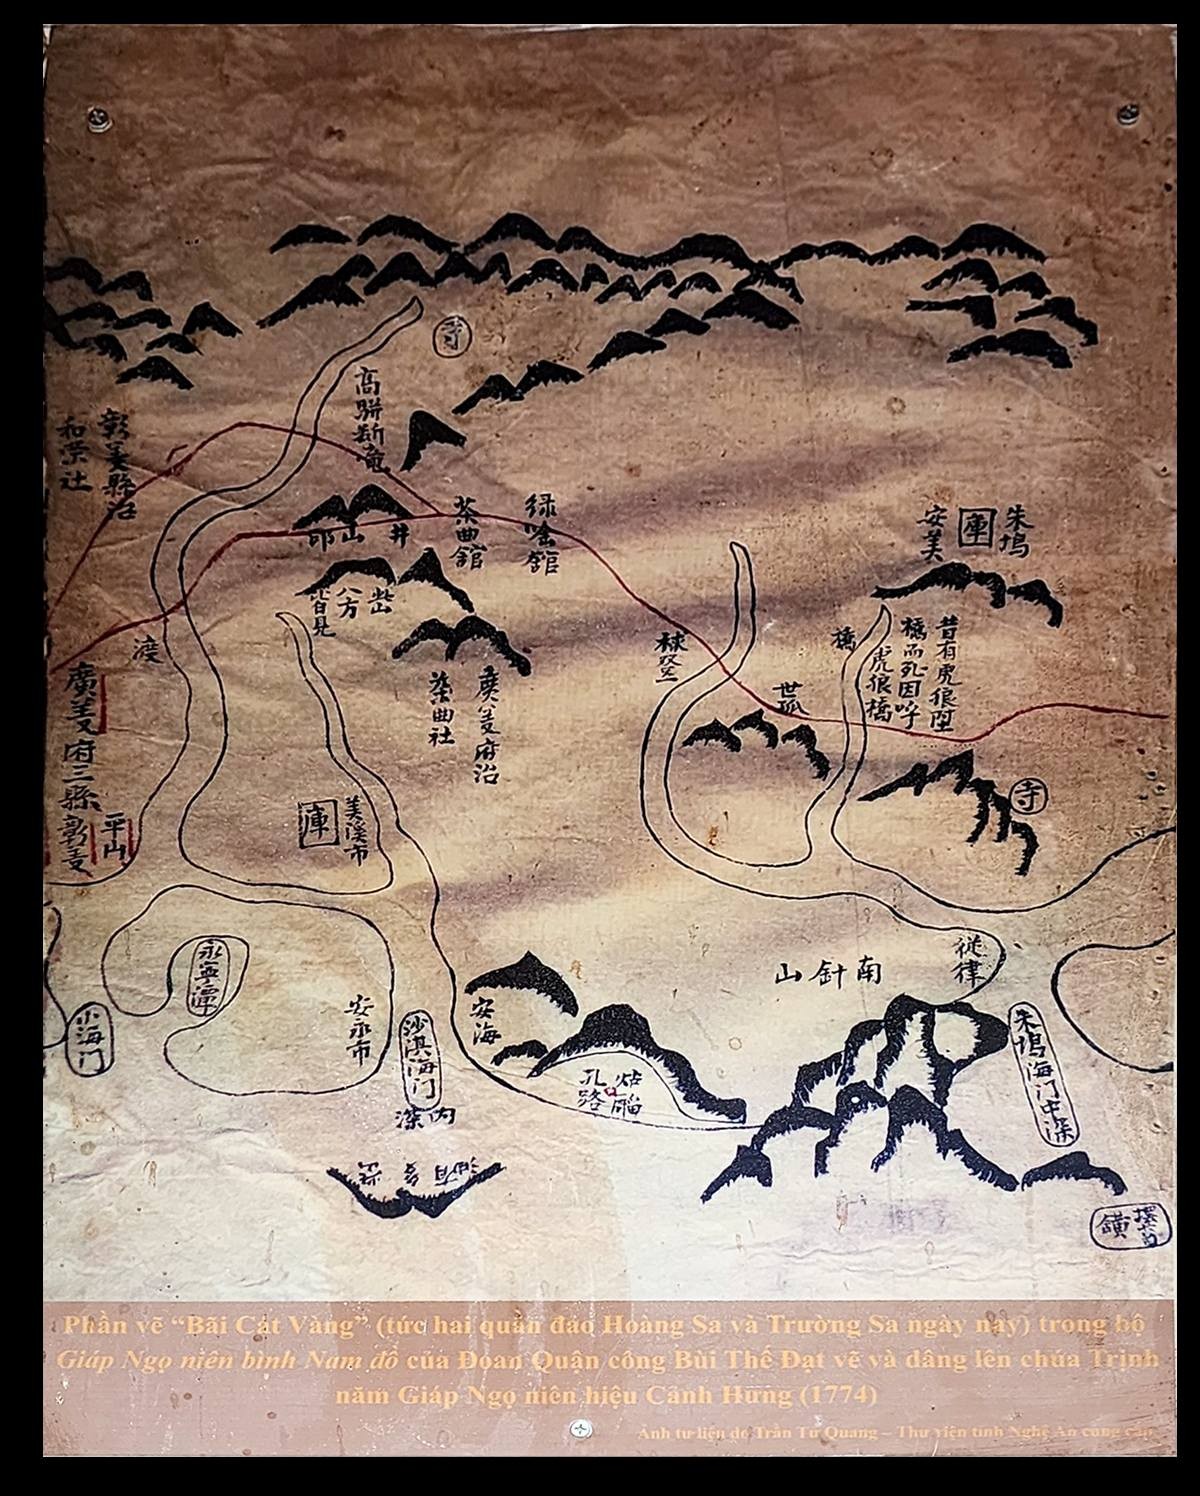 寺
高駢斷竜
彰義縣治
和榮社
井
山
茶曲館
緑唅館
朱塢
庫
安美
八方
皆見
渡
橋
昔有虎狼堕
橋而死因呼
虎狼橋
廣義府三縣
彰義
平山
廣義府治
茶曲社
寺
庫
美溪市
南針山
從律
永寧潭
小海门
安永市
沙淇海门
内深
安海
孔路
朱塢海门中深
Phần vẽ “Bãi Cát Vàng” (tức hai quần đảo Hoàng Sa và Trường Sa ngày nay) trong bộ
Giáp Ngọ niên bình Nam đồ của Đoan Quận công Bùi Thế Đạt vẽ và dâng lên chúa Trịnh
năm Giáp Ngọ niên hiệu Cảnh Hưng (1774)
Ảnh tư liệu do Trần Tử Quang – Thư viện tỉnh Nghệ An cung cấp